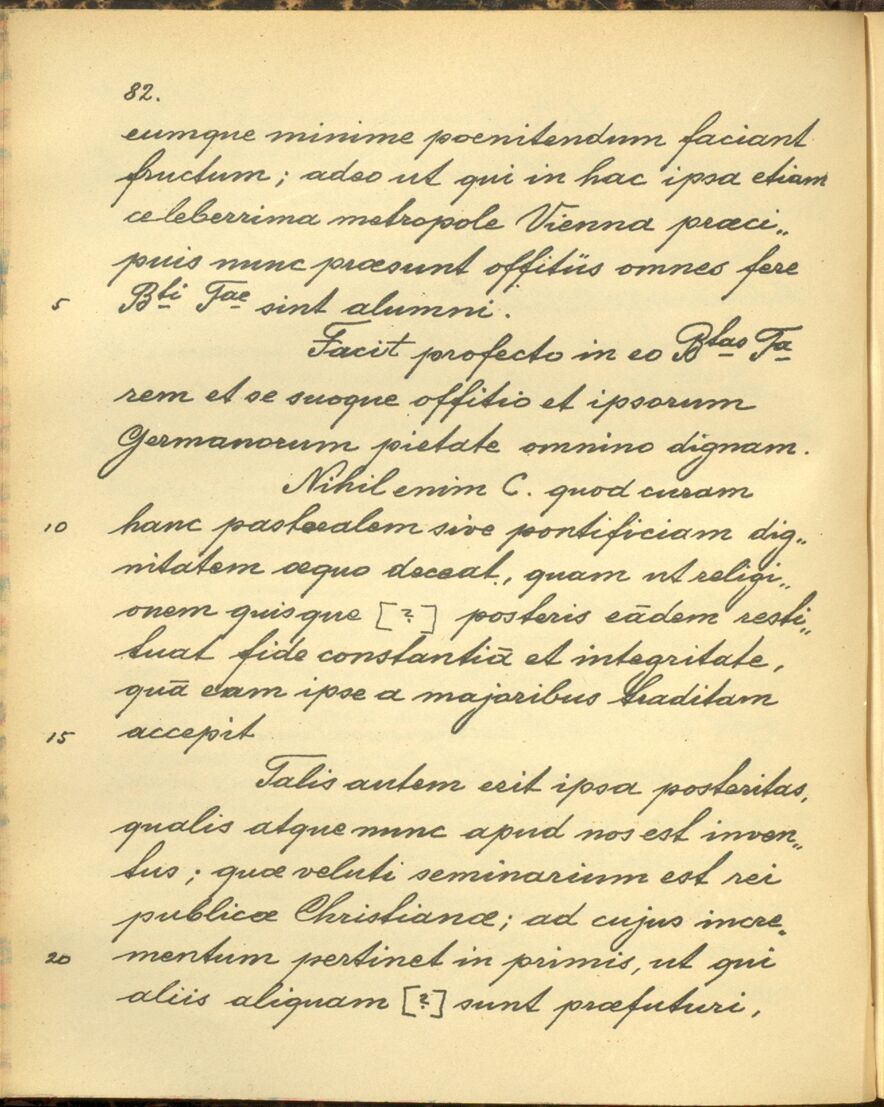 82.
eumque minime poenitendum faciant
fructum; adeo ut qui in hac ipsa etiam
celeberrima metropole Vienna præci„
puis nunc præsunt offitiis omnes fere
5 Bti Tae sint alumni.
Facit profecto in eo Btas Ta
rem et se suoque offitio et ipsorum
Germanorum pietate omnino dignam.
Nihil enim C. quod curam
10 hanc pastoralem sive pontificiam dig„
nitatem æquo deceat, quam ut religi„
onem quisque [?] posteris eādem resti„
tuat fide constantiā et integritate,
quā eam ipse a majoribus traditam
15 accepit
Talis autem erit ipsa posteritas,
qualis atque nunc apud nos est inven„
tus; quæ veluti seminarium est rei
publicæ Christianæ; ad cujus incre„
20 mentum pertinet in primis, ut qui
aliis aliquam [?] sunt præfuturi,